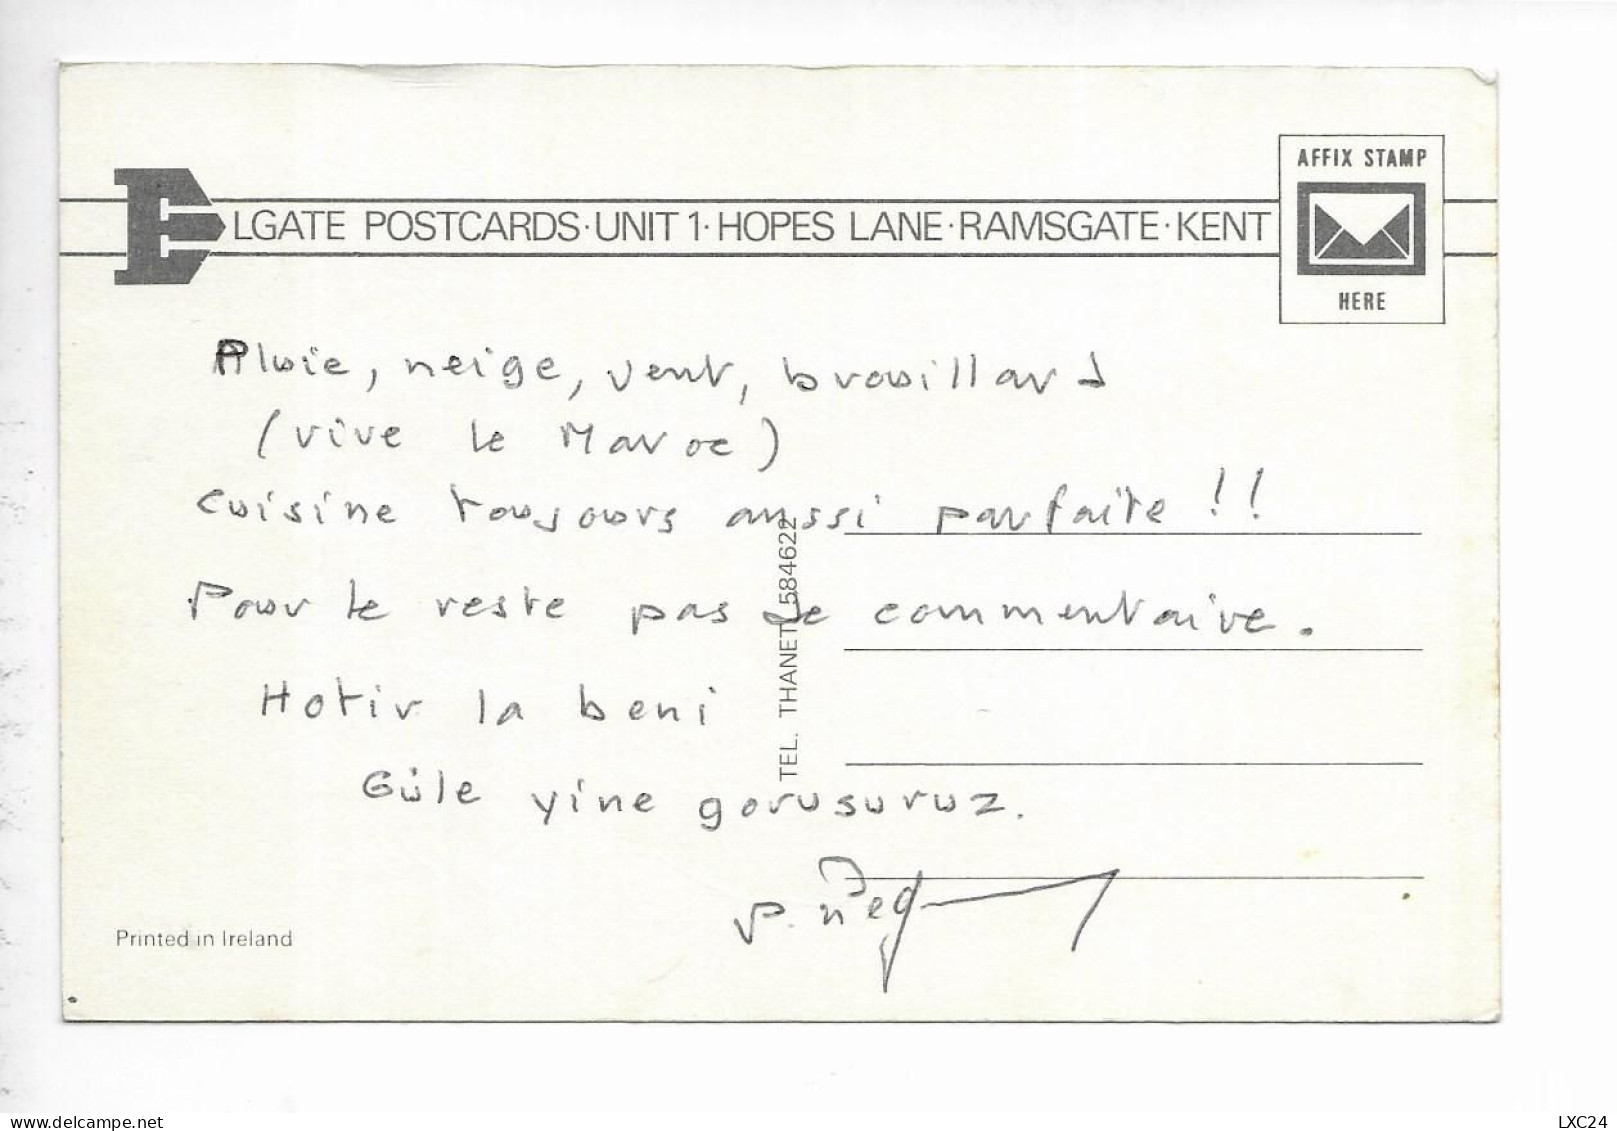 AFFIX STAMP
ELGATE POSTCARDS·UNIT 1·HOPES LANE·RAMSGATE·KENT
HERE
Pluie, neige, vent, brouillard
(vive le Maroc)
cuisine toujours aussi parfaite !!
Pour le reste pas de commentaire.
Hotir la beni
Güle yine gorusuruz.
TEL. THANET 584622
Printed in Ireland
https://www.delcampe.net
LXC24